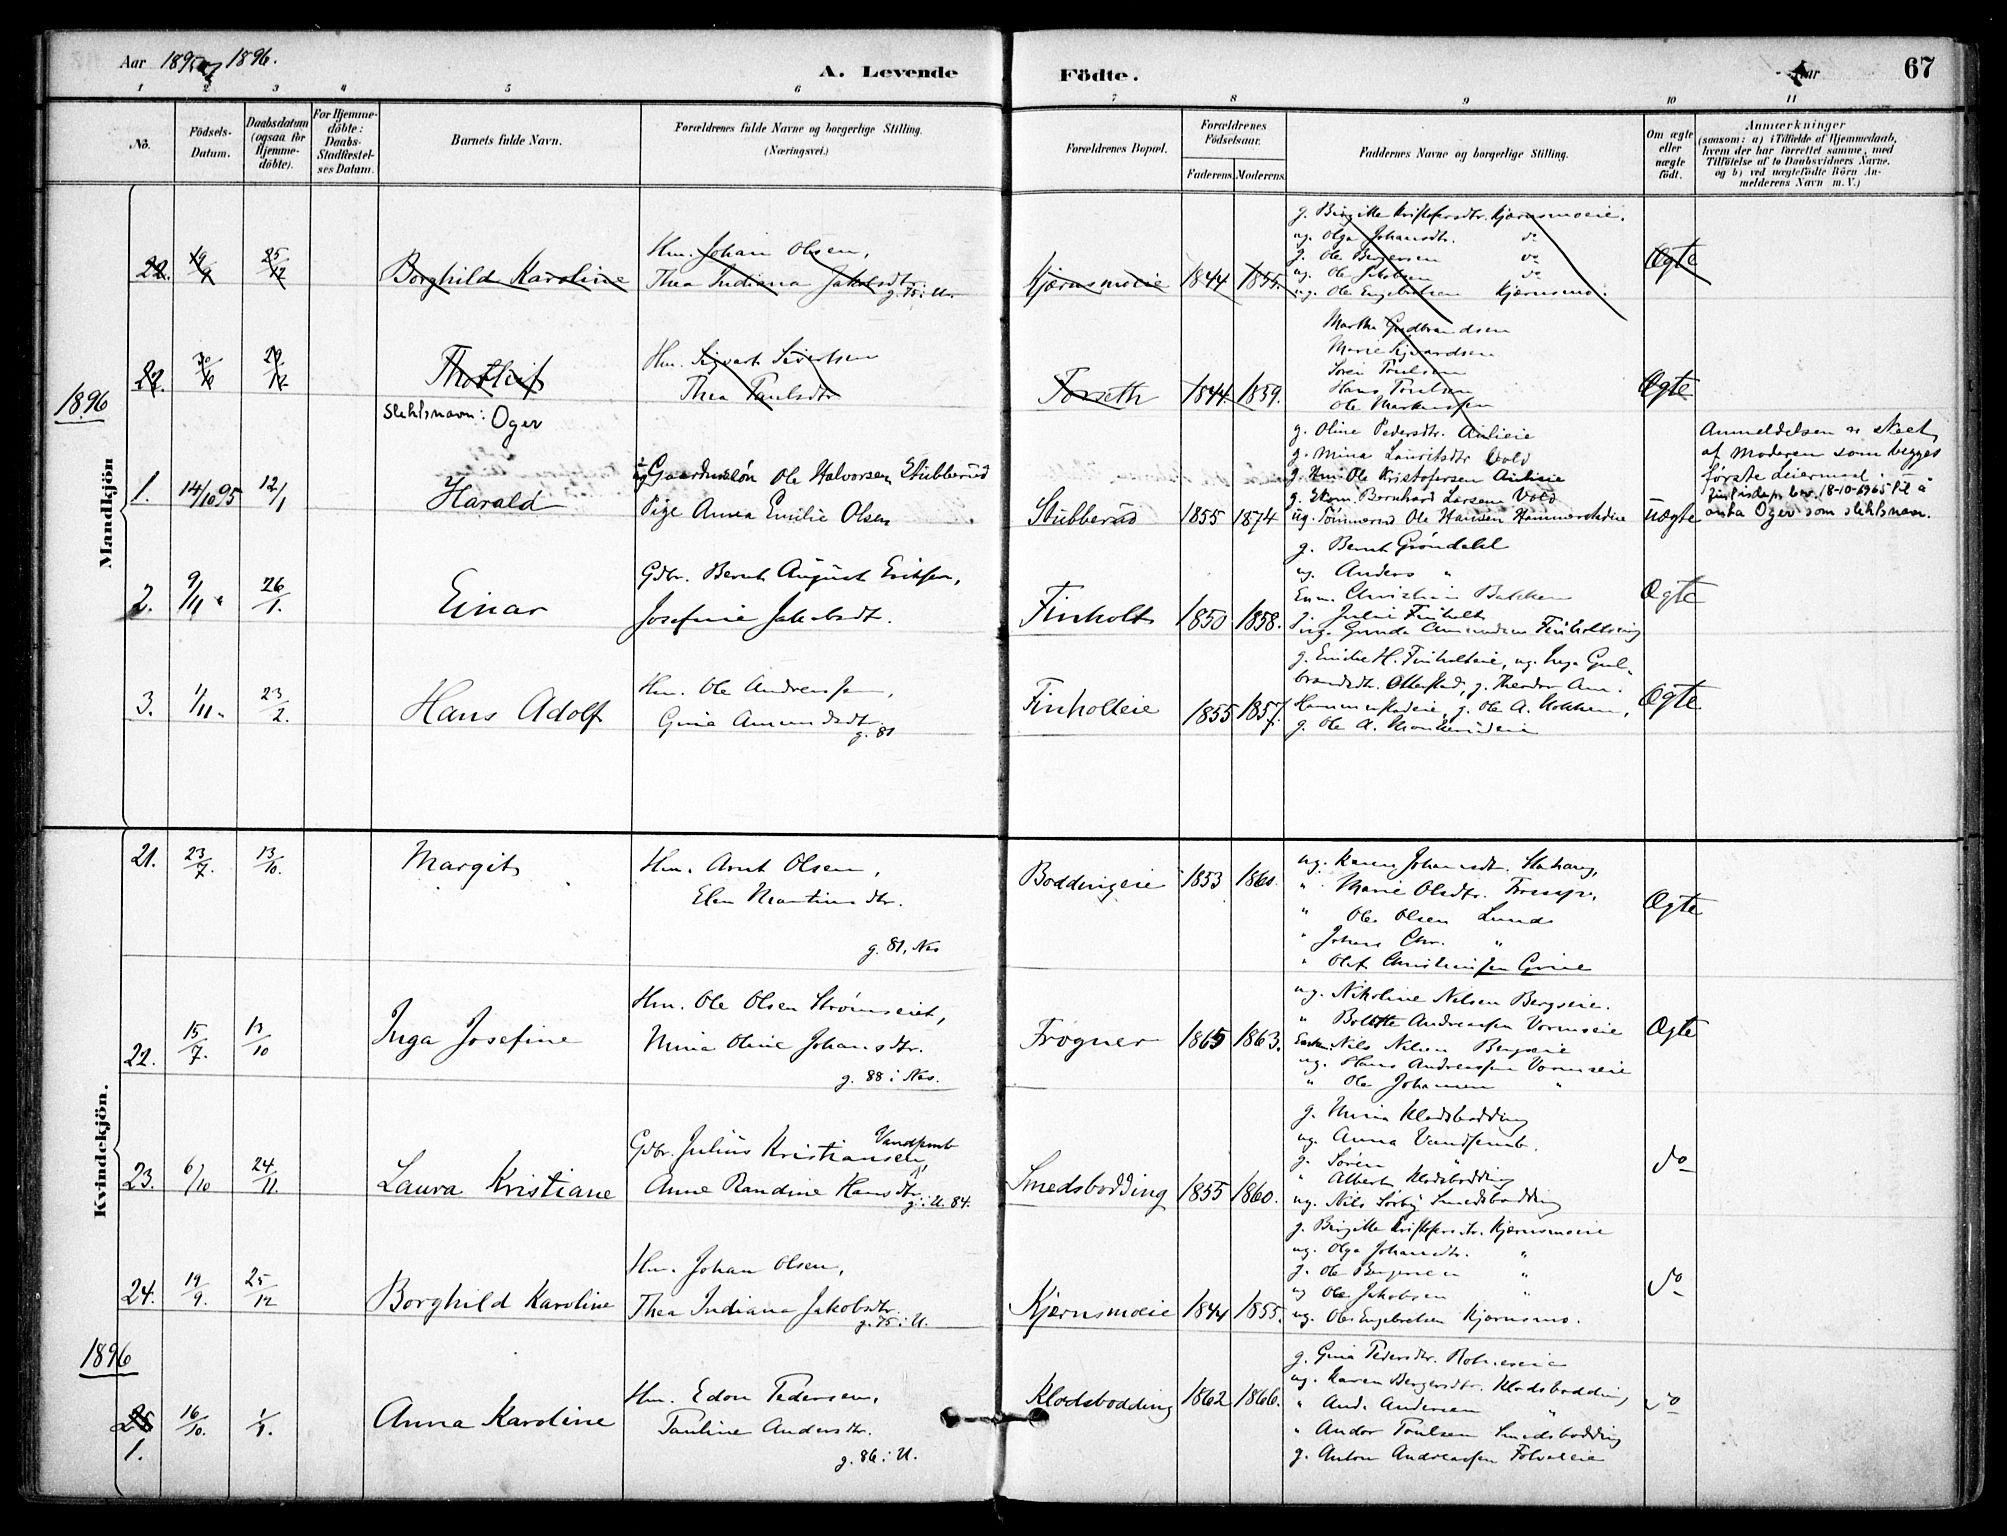 Aar 1895 og 1896.
A. Levende
Födte.
Aar
67
1 2 3 4 5 6 7 8 9 10 11
No.
Födsels-Datum.
Daabsdatum (ogsaa för Hjemme-döbte).
For Hjemme-döbte: Daabs-Stadfæstel-ses Datum.
Barnets fulde Navn.
Forældrenes fulde Navne og borgerlige Stilling.
(Næringsvei.)
Forældrenes Bopæl.
Forældrenes Födselsaar.
Faderens Moderens
Faddernes Navne og borgerlige Stilling.
Om ægte eller uægte födt.
Anmærkninger
(saasom: a) i Tilfælde af Hjemmedaab,
hvem der har forrettet samme, med
Tilföielse af to Daabsvidners Navne.
og b) ved uægtefödte Börn An-
melderens Navn m. V.)
Mandkjön
22. 19/9 25/12 Borghild Karoline
Hm. Johan Olsen,
Thea Indiana Jakobsdtr.
g. 75 i U.
Kjærnsmoeie 1844 1855.
g. Birgitte Kristofersdtr. Kjærnsmoeie.
ug. Olga Johansdtr. do
g. Ole Bergersen do
ug. Ole Jakobsen do
ug. Ole Engebretsen Kjærnsmo.
Ægte
29/12
Thorleif
Hm. Sigvart Sivertsen
Thea Paulsdtr
Forseth 1844. 1859.
Martha Gudbrandsen
Marie Sigvardsen
Hans Poulsen
Ole Markussen
Ægte
1896
Slektsnavn: Oger
1. 14/10 95 12/1 Harald
ug Gaardmansøn Ole Halvorsen Stubberud
Pige Anna Emilie Olsen
Stubberud 1855 1874
g. Oline Pedersdtr. Aulieie
g. Mina Lauritsdtr Vold
g. Hm. Ole Kristofersen Aulieie
g. Bernhard Larsen Vold
ug. Tømmermd Ole Hansen Hammerstadeie
uægte
Anmeldelsen er skeet
af moderen som begges
første Leiermaal.
Justisdep. brev. 18-10-1965 til å
anta Oger som slektsnavn.
2. 9/11 " 26/1. Einar
Gdbr. Bernt August Eriksen,
Josefine Jakobsdt.
Finholt 1850 1858.
g. Bernt Grøndahl
ug. Anders "
Em. Christian Bakken
g. Julie Finholt
ug. Gunda Amundsen Finholteie
Ægte
3. 1/11 " 23/2. Hans Adolf
Hm. Ole Andreassen,
Gina Amundsdt.
g. 81
Finholteie 1855 1857.
g. Emilie H. Finholteie, ug. Inga Gul-
brandsdt. Otterstad, g. Theodor Am.
Hammerstadeie, g. Ole A. Kokken,
g. Ole A.
Ægte
Kvindekjön.
21. 23/7. 13/10. Margit
Hm. Arnt Olsen,
Elen Martinusdtr.
g. 81, Nes
Boddingeie 1853 1860.
ug. Karen Johannesdtr.
" Marie Olsdtr.
" Ole Olsen Lund
" Johan Chr. "
" Olaf Christiansen
Ægte
22. 15/7. 13/10 Inga Josefine
Hm. Ole Olsen Strømseiet,
Mina Oline Johansdtr.
g. 88 i Nes.
Frogner 1865 1863.
ug. Nikoline Nilsen Bergseie.
" Bolette Andreassen Vormseie
Nils Nilsen Bergseie
ug. Hans Andreassen Vormseie
" Ole Johansen "
Ægte
23. 6/10 24/11. Laura Kristiane
Gdbr. Julius Kristiansen Vandsemb
Anne Randine Hansdtr
g. i U. 84.
Smedsbodding 1855 1860.
g. Mina Klodsbodding
ug. Anna Vandsemb.
g. Søren "
" Albert Klodsbodding
ug. Nils Sørby Smedsbodding
do
24. 19/9. 25/12 Borghild Karoline
Hm. Johan Olsen,
Thea Indiana Jakobsdtr.
g. 75 i U.
Kjærnsmoeie 1844 1855.
g. Birgitte Kristofersdtr. Kjærnsmoeie
ug. Olga Johansdtr. "
g. Ole Bergersen "
ug Ole Jakobsen "
ug. Ole Engebretsen Kjærnsmo.
do
1896
25
1. 16/10. 1/1. Anna Karoline
Hm. Edon Pedersen,
Pauline Andersdtr.
g. 86 i U.
Klodsbodding 1862 1866.
g. Gina Pedersdtr.
ug. Karen Bergersdtr. Klodsbodding
" And. Andersen "
" Andor Poulsen Smedsbodding
g. Anton Andreassen
do